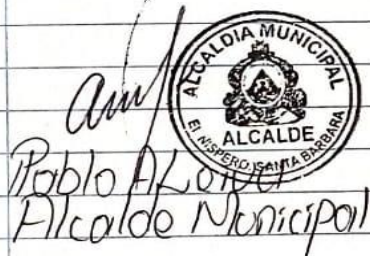 ALCALDIA MUNICIPAL
ALCALDE
EL NISPERO, SANTA BARBARA
Pablo
Alcalde Municipal